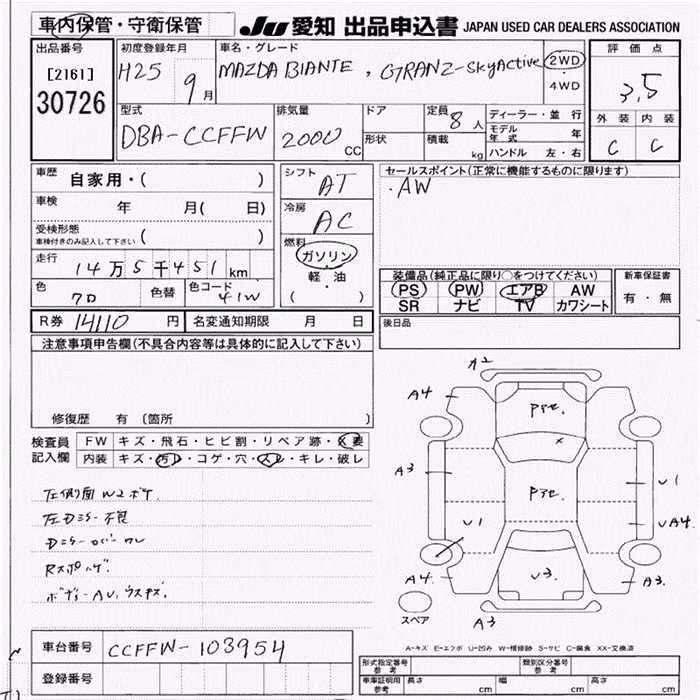 車内保管・守衛保管
JU 愛知 出品申込書 JAPAN USED CAR DEALERS ASSOCIATION
出品番号
[2161]
30726
初度登録年月
H25 9月
車名・グレード
MAZDA BIANTE , GRANZ-SkyActive
2WD
・
4WD
評価点
3,5
外装 内装
C C
型式
DBA-CCFFW
排気量
2000 CC
ドア
形状
定員 8人
積載 kg
ディーラー・並行
モデル年式 年
ハンドル 左・右
車歴 自家用・( )
車検 年 月( 日)
受検形態
車検付きのみ記入して下さい ( )
走行 14万5千451km
色 クロ 色替 色コード 41W
シフト AT
冷房 AC
燃料
ガソリン
・
軽・油
( )
セールスポイント(正常に機能するものに限ります)
・AW
装備品(純正品に限り○をつけてください)
PS PW エアB AW
SR ナビ TV カワシート
新車保証書
有・無
後日品
R券 14110 円 名変通知期限 月 日
注意事項申告欄(不具合内容等は具体的に記入して下さい)
修復歴 有 [箇所 ]
検査員記入欄
FW キズ・飛石・ヒビ割・リペア跡・X要
内装 キズ・汚レ・コゲ・穴・スレ・キレ・破レ
左側面W2ボケ
左Dミラー不良
Dミラーカバーワレ
Rスポハゲ
ボデーAU,ウスキズ
A2
A4
Pэс.
A3
U1
Pэс.
U1
UA4
A4
U3
A3
スペア
A3
A-キズ E-エクボ U-凹み W-補修跡 S-サビ C-腐食 XX-交換済
車台番号 CCFFW-103954
登録番号
形式指定番号 参考
類別区分番号 参考
車庫証明用 参考 長さ cm 幅 cm 高さ cm